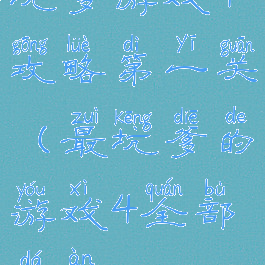 gōng lüè dì yī guān
攻略第一关
zuì kēng diē de
(最坑爹的
yóu xì quán bù
游戏4全部
dá àn